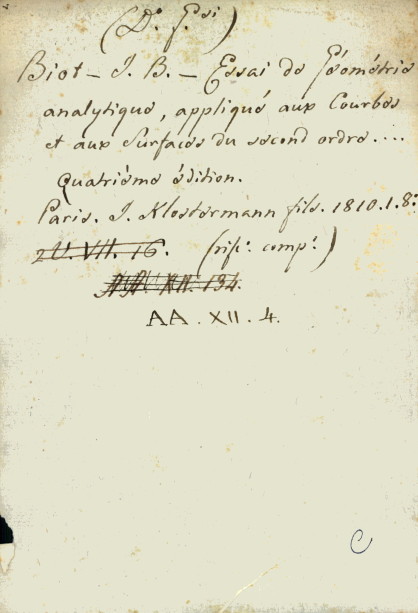 (D.º F.si)
Biot - J. B. - Essai de Géométrie
analytique, appliqué aux Courbes
et aux Surfaces du second ordre....
Quatriéme édition.
Paris. J. Klostermann fils. 1810. 1. 8.º
VII. 16. (rif.º comp.º)
XII. 134.
AA. XII. 4.
C